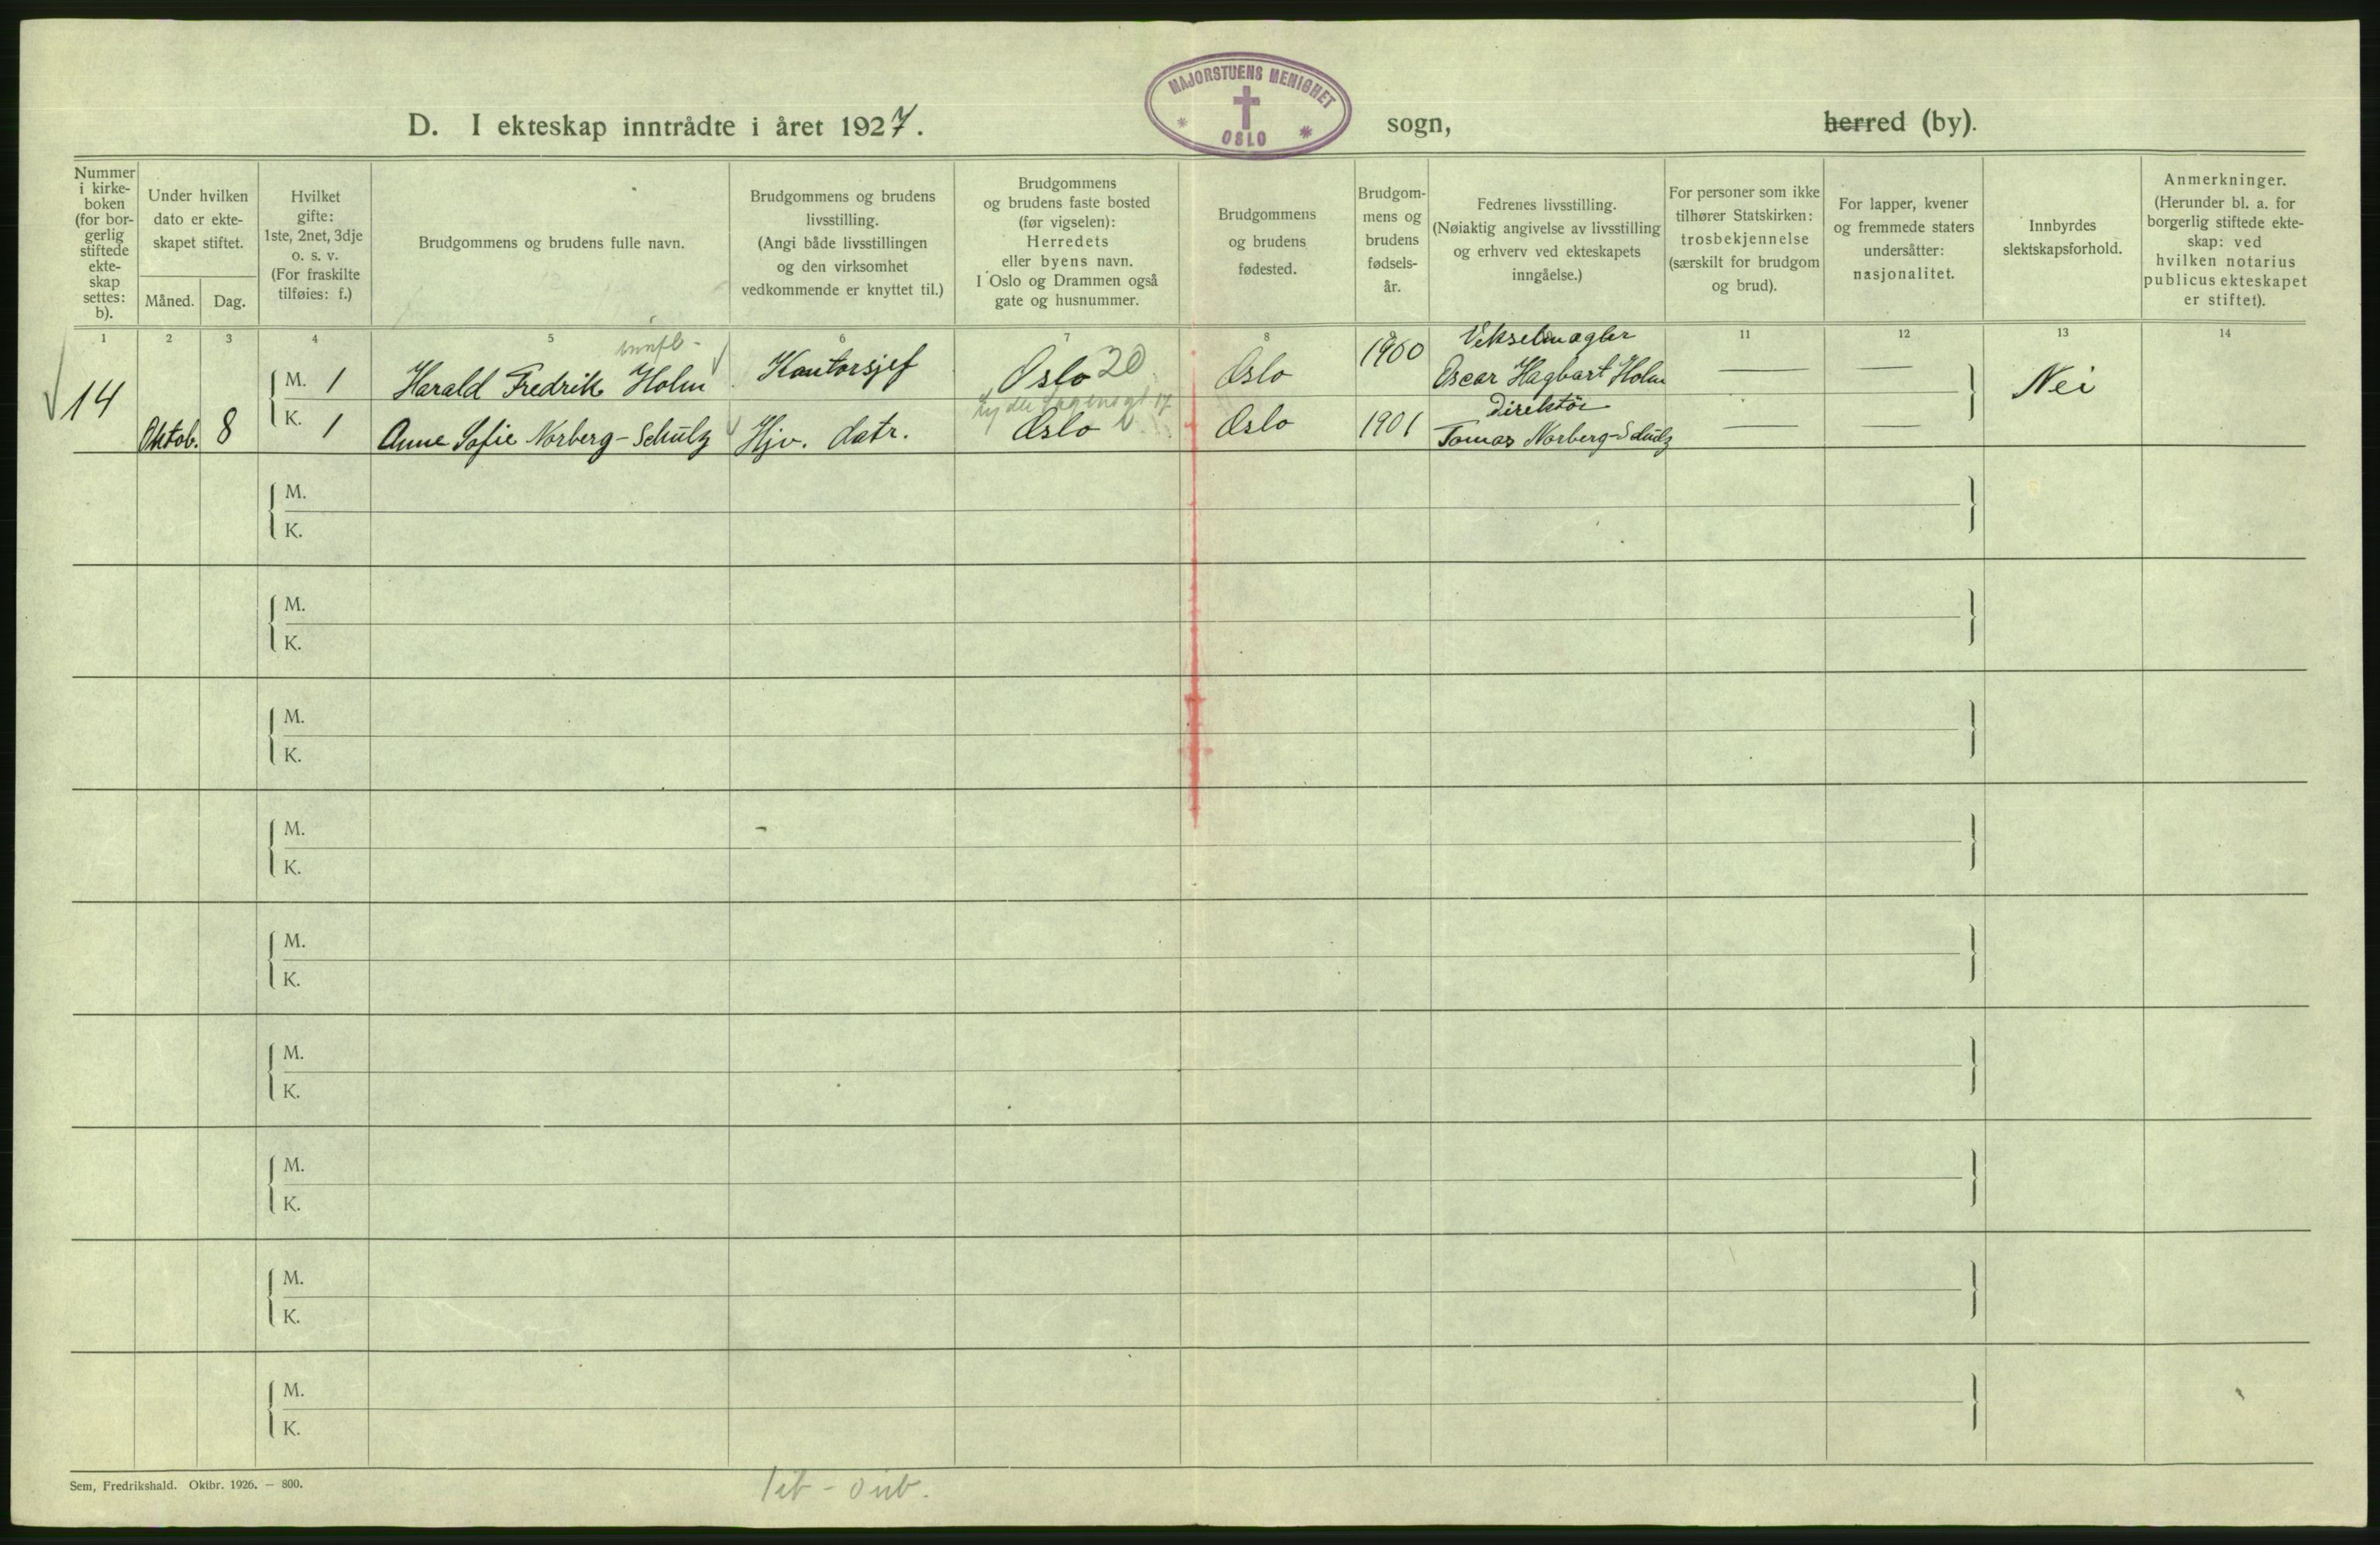 MAJORSTUENS MENIGHET
OSLO
D. I ekteskap inntrådte i året 1927. sogn, herred (by).
Nummer
i kirke-
boken
(for bor-
gerlig
stiftede
ekte-
skap
settes:
b).
Under hvilken
dato er ekte-
skapet stiftet.
Måned. Dag.
Hvilket
gifte:
1ste, 2net, 3dje
o. s. v.
(For fraskilte
tilføies: f.)
Brudgommens og brudens fulle navn.
Brudgommens og brudens
livsstilling.
(Angi både livsstillingen
og den virksomhet
vedkommende er knyttet til.)
Brudgommens
og brudens faste bosted
(før vigselen):
Herredets
eller byens navn.
I Oslo og Drammen også
gate og husnummer.
Brudgommens
og brudens
fødested.
Brudgom-
mens og
brudens
fødsels-
år.
Fedrenes livsstilling.
(Nøiaktig angivelse av livsstilling
og erhverv ved ekteskapets
inngåelse.)
For personer som ikke
tilhører Statskirken:
trosbekjennelse
(særskilt for brudgom
og brud).
For lapper, kvener
og fremmede staters
undersåtter:
nasjonalitet.
Innbyrdes
slektskapsforhold.
Anmerkninger.
(Herunder bl. a. for
borgerlig stiftede ekte-
skap: ved
hvilken notarius
publicus ekteskapet
er stiftet).
1 2 3 4 5 6 7 8 11 12 13 14
innfl-
Vekselmægler
14 M. 1 Harald Fredrik Holm Kontorsjef Oslo 20 Oslo 1900 Oscar Hagbart Holm — — Nei
Direktör
Oktob. 8 K. 1 Anne Sofie Norberg-Schulz Hjv. datr. Oslo Oslo 1901 Tomas Norberg-Schulz — —
M.
K.
M.
K.
M.
K.
M.
K.
M.
K.
M.
K.
M.
K.
M.
K.
M.
K.
Sem, Fredrikshald. Oktbr. 1926. — 800.